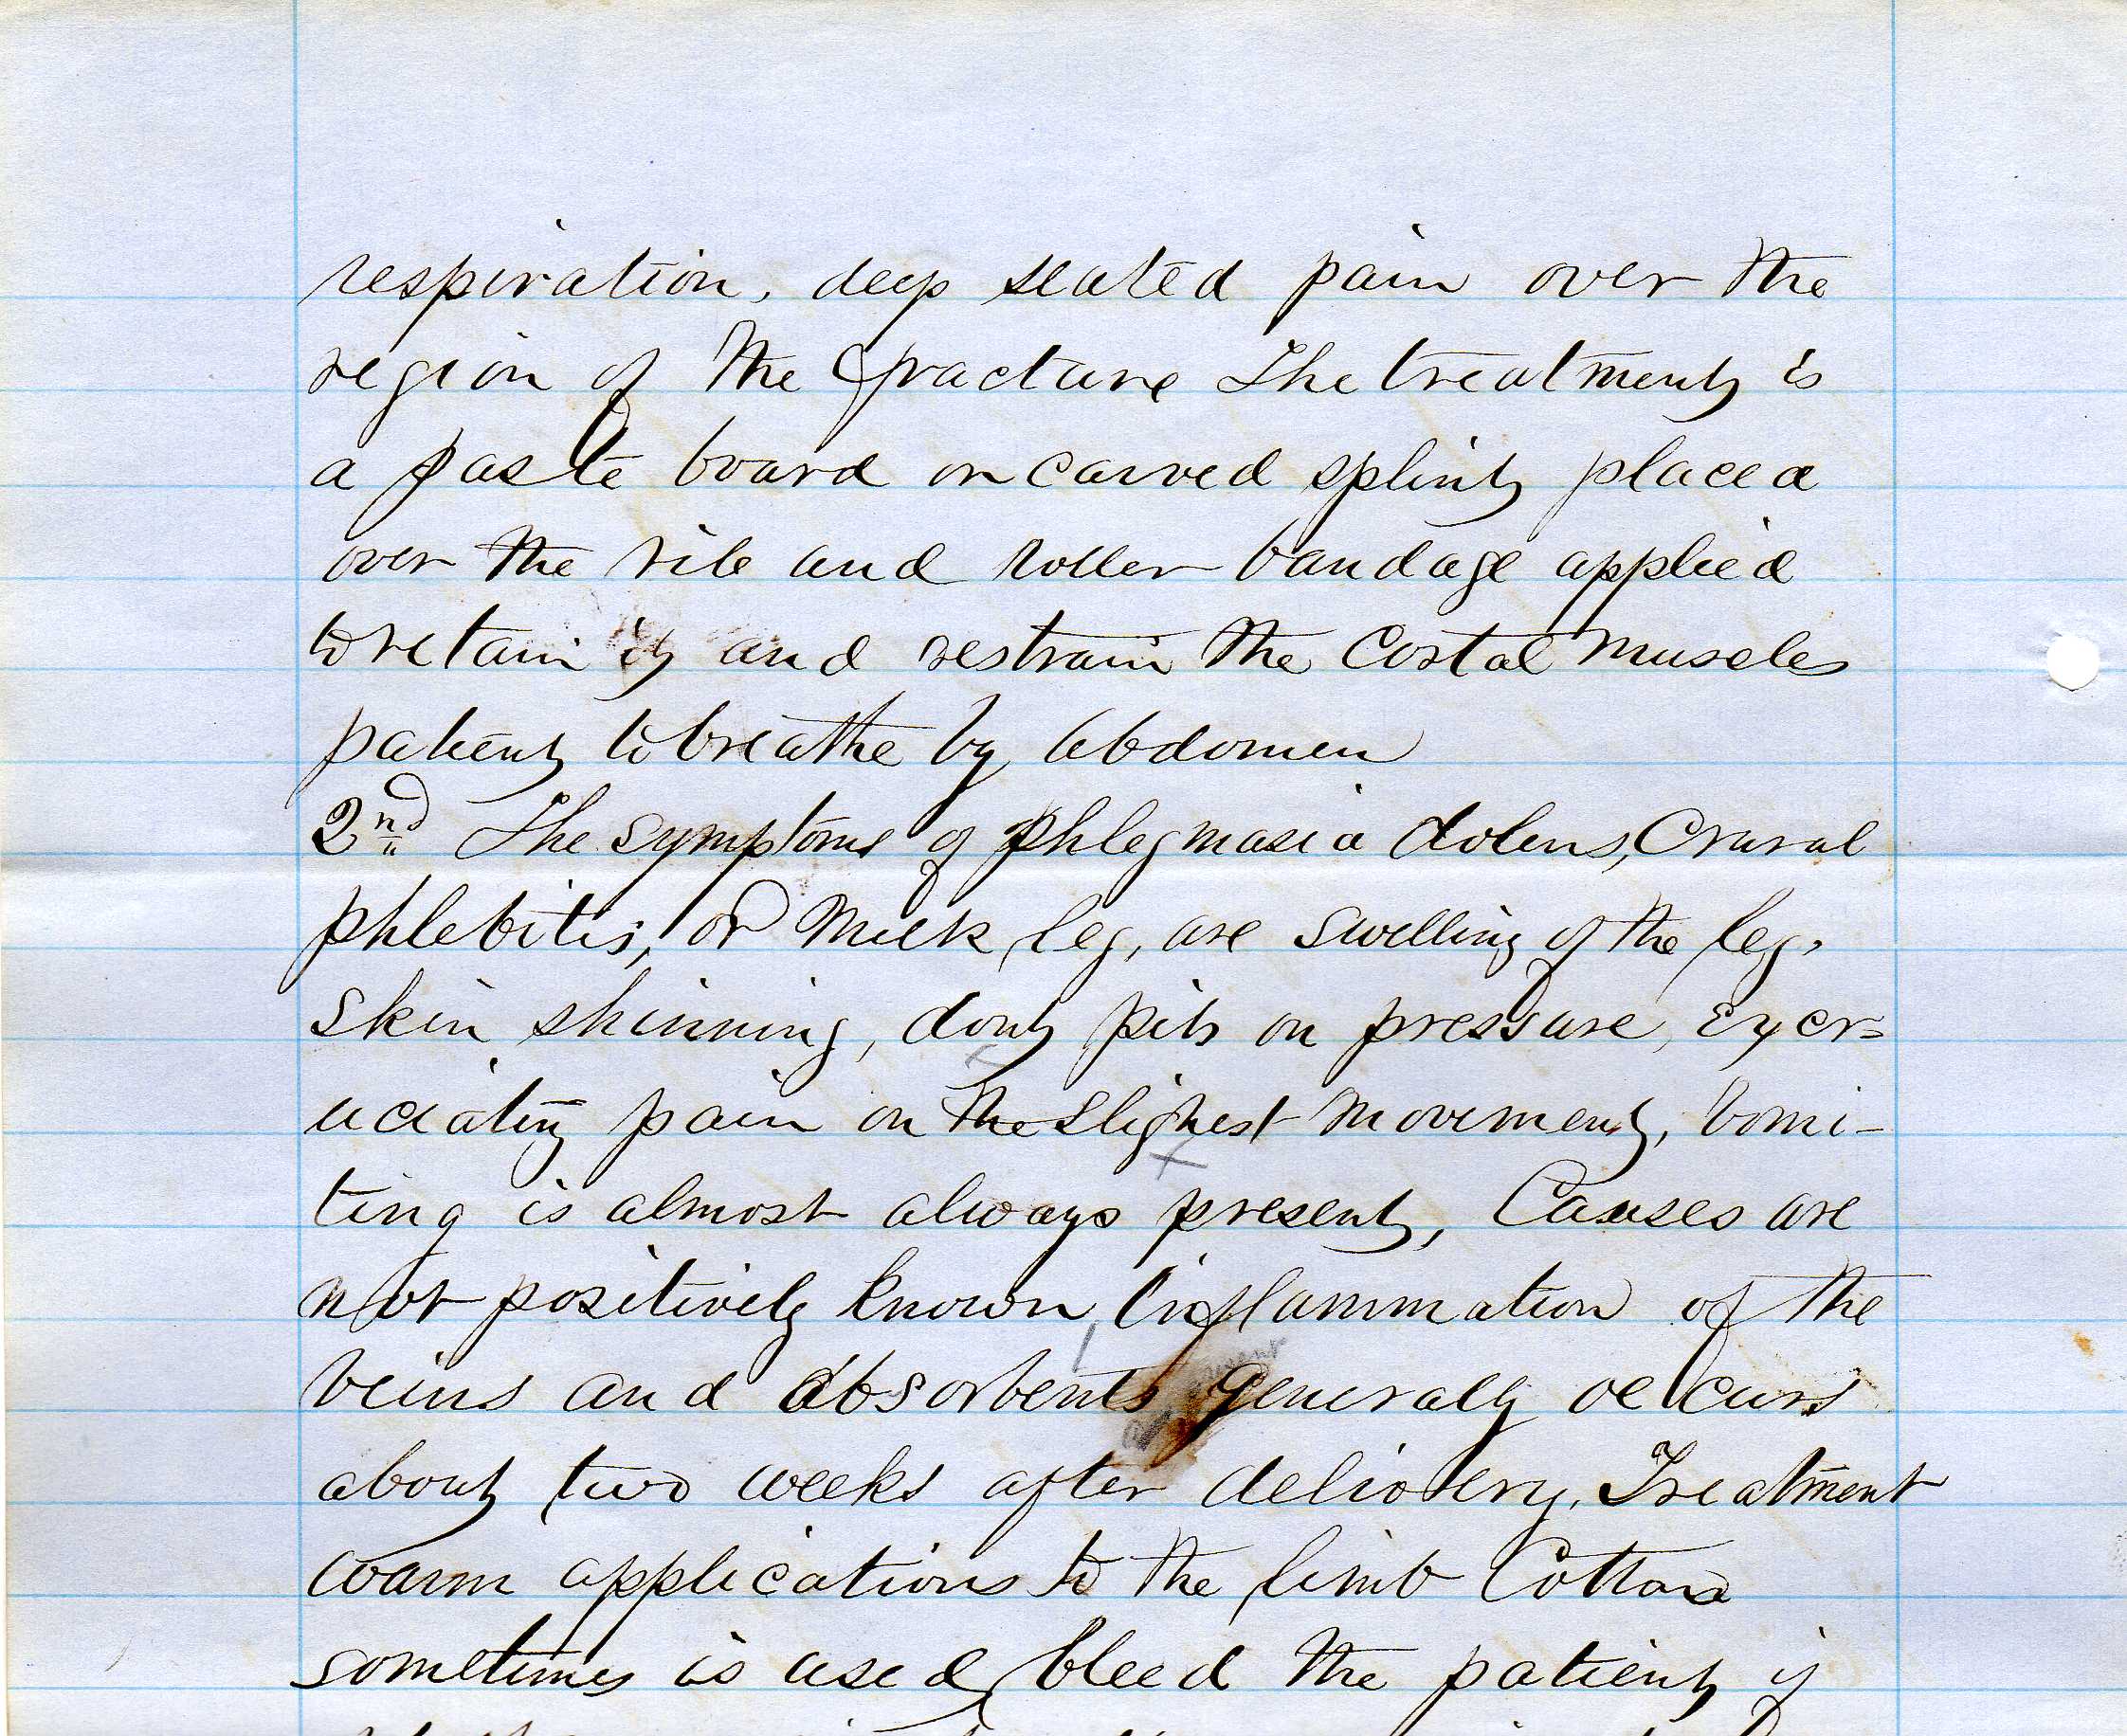 respiration, deep seated pain over the
region of the fracture The treatment is
a paste board or carved splint placed
over the rib and roller bandage applied
to retain it and restrain the Costal muscles
patient to breathe by abdomen
2nd The symptoms of phlegmasia dolens, Crural
phlebitis, or Milk leg, are swelling of the leg,
skin shinning, dont pit on pressure, Excr=
uciating pain on the slighest movement, vomi-
ting is almost always present, Causes are
not positively known, Inflammation of the
veins and absorbents generaly occurs
about two weeks after delivery. Treatment
warm applications to the limb Cotton
sometimes is used, bleed the patient if